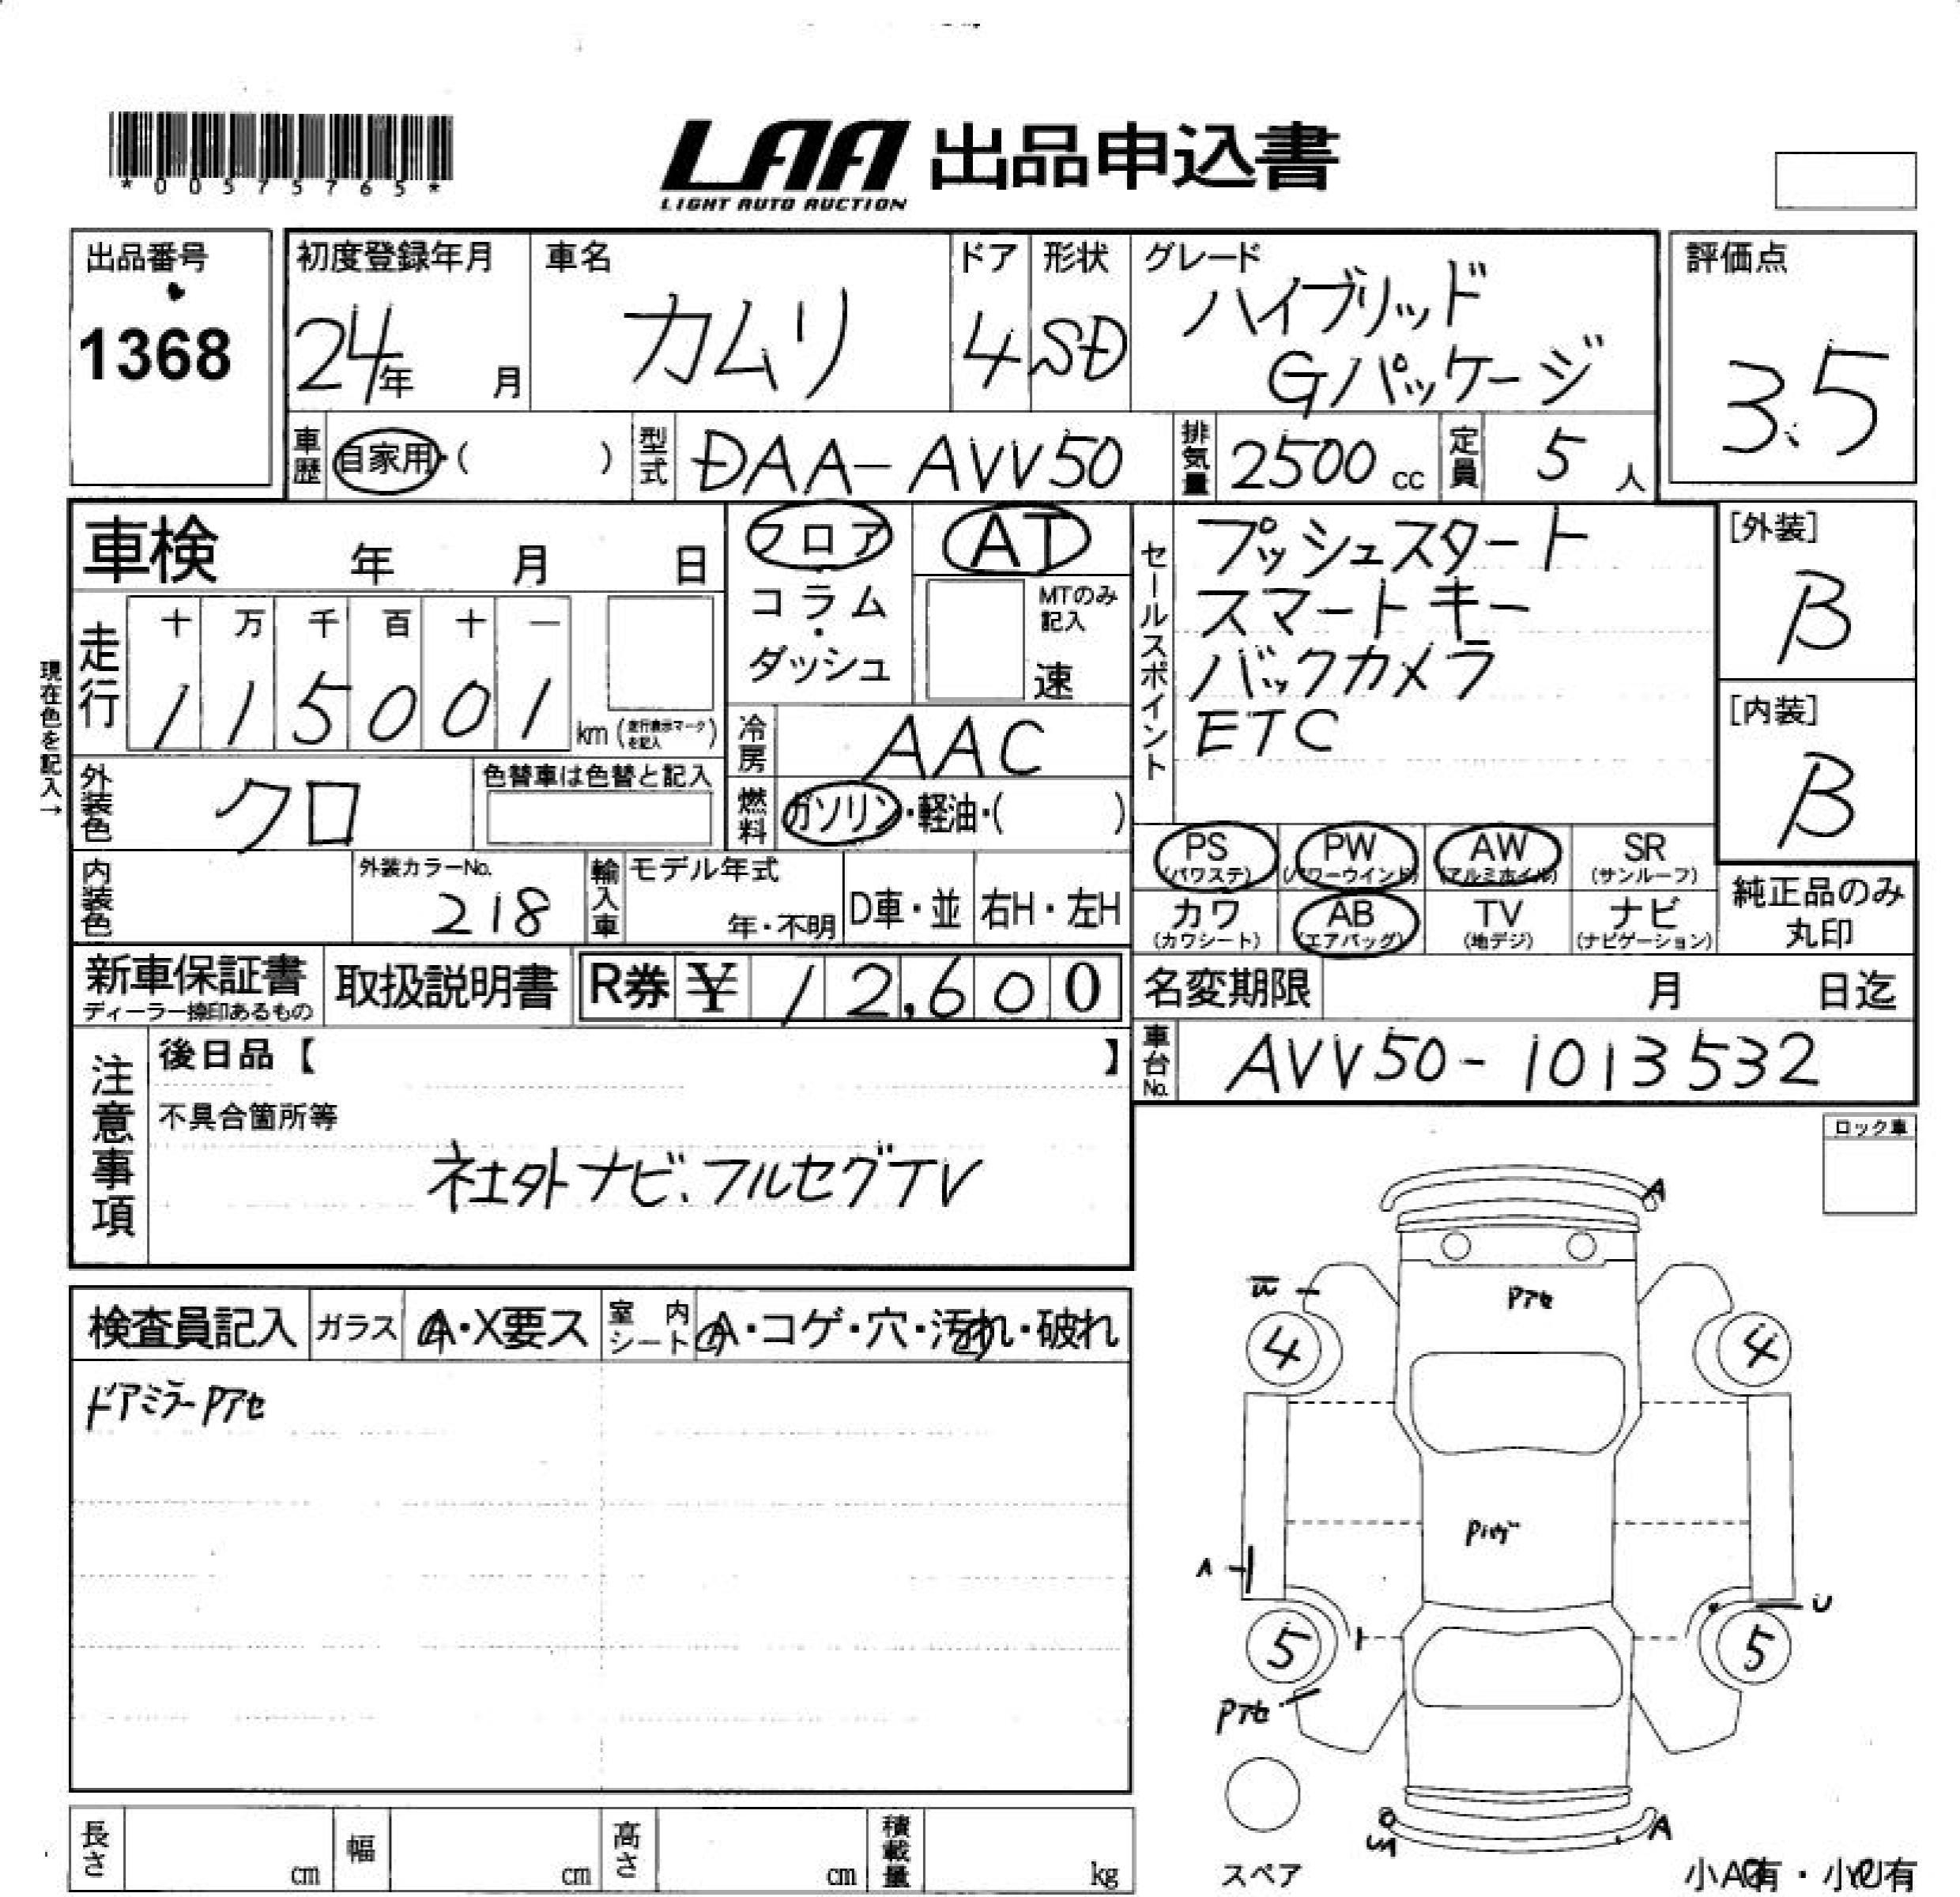 *00575765*
LAA 出品申込書
LIGHT AUTO AUCTION
出品番号
1368
初度登録年月
24年 月
車名
カムリ
ドア
4
形状
SD
グレード
ハイブリッド
Gパッケージ
評価点
3.5
車歴
自家用・( )
型式
DAA-AVV50
排気量
2500 cc
定員
5 人
車検 年 月 日
フロア
コラム
・
ダッシュ
AT
MTのみ
記入
速
セールスポイント
プッシュスタート
スマートキー
バックカメラ
ETC
[外装]
B
[内装]
B
現在色を記入→
走行
十 万 千 百 十 一
1 1 5 0 0 1 km (走行表示マークを記入)
冷房
AAC
燃料
ガソリン・軽油・( )
外装色
クロ
色替車は色替と記入
内装色
外装カラーNo.
218
輸入車
モデル年式
年・不明
D車・並
右H・左H
PS
(パワステ)
PW
(パワーウインド)
AW
(アルミホイル)
SR
(サンルーフ)
カワ
(カワシート)
AB
(エアバッグ)
TV
(地デジ)
ナビ
(ナビゲーション)
純正品のみ
丸印
新車保証書
ディーラー捺印あるもの
取扱説明書
R券 ¥ 12,600
名変期限 月 日迄
車台No.
AVV50-1013532
注意事項
後日品【 】
不具合箇所等
社外ナビ、フルセグTV
ロック車
検査員記入
ガラス
A・X要ス
室内
シート
A・コゲ・穴・汚れ・破れ
ドアミラーPアセ
A
Pアセ
4
4
A
U
5
5
Pアセ
A
スペア
小A有・小U有
長さ cm
幅 cm
高さ cm
積載量 kg